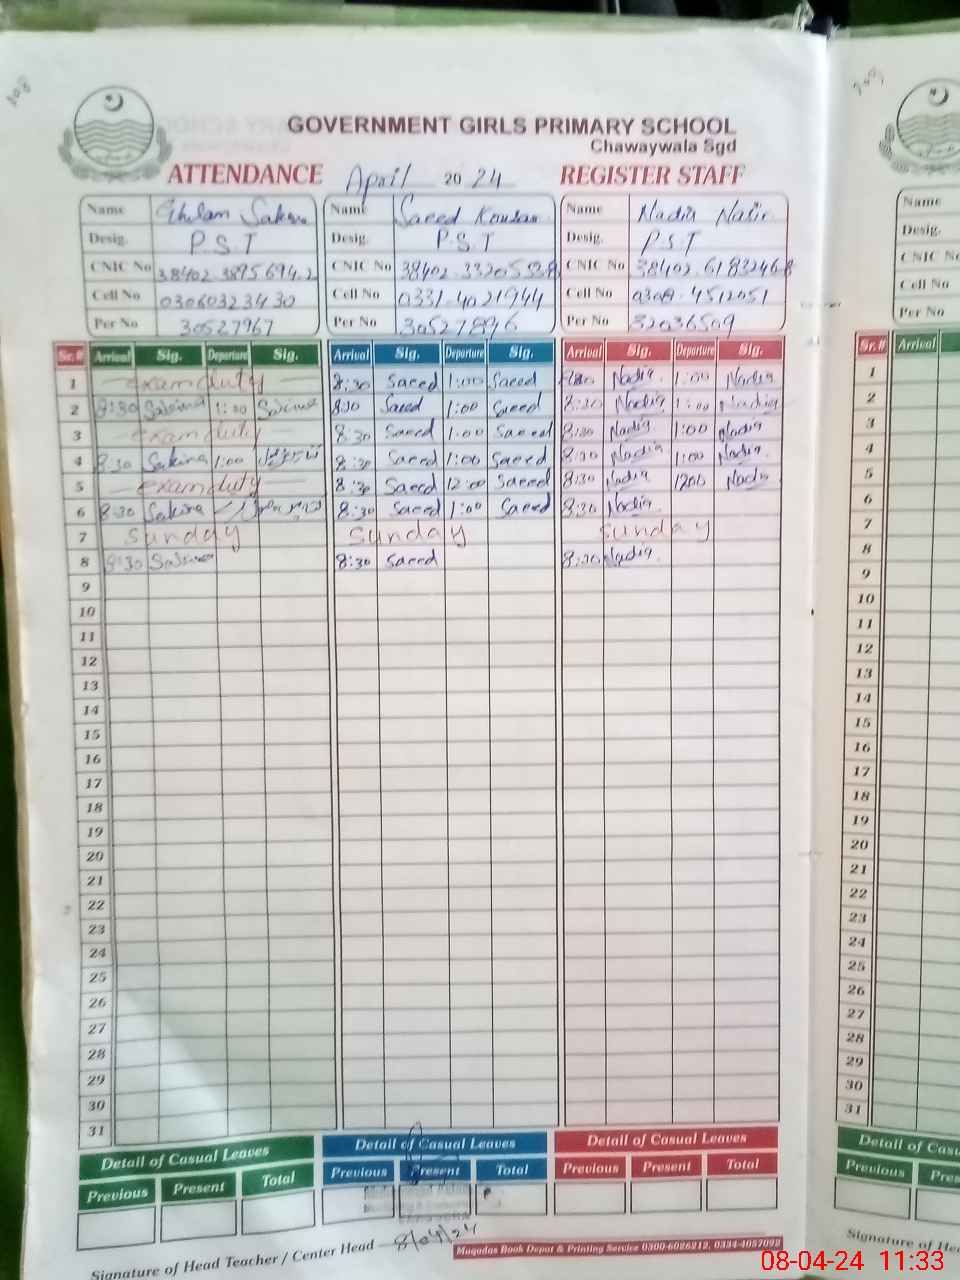 GOVERNMENT GIRLS PRIMARY SCHOOL
Chawaywala Sgd
ATTENDANCE April 2024 REGISTER STAFF
Name Ghulam Name Saeed Kousar Name Nadia Nasir
Desig. P.S.T Desig. P.S.T Desig. P.S.T
CNIC No CNIC No CNIC No
Cell No 03060323430 Cell No 0331-4021944 Cell No
Per No 30527967 Per No 30527896 Per No 32036509
Sr.# Arrival Sig. Departure Sig. Arrival Sig. Departure Sig. Arrival Sig. Departure Sig.
1 exam duty 8:30 Saeed 1:00 Saeed Nadia 1:00 Nadia
2 8:30 Sakina 1:00 8:30 Saeed 1:00 Saeed 8:30 Nadia 1:00 Nadia
3 exam duty 8:30 Saeed 1:00 Saeed 8:30 Nadia 1:00 Nadia
4 8:30 Sakina 1:00 8:30 Saeed 1:00 Saeed 8:30 Nadia 1:00 Nadia
5 exam duty 8:30 Saeed 12:00 Saeed 8:30 Nadia 1200 Nadia
6 8:30 Sakina 8:30 Saeed 1:00 Saeed 8:30 Nadia
7 Sunday Sunday Sunday
8 8:30 Sakina 8:30 Saeed 8:30 Nadia
9
10
11
12
13
14
15
16
17
18
19
20
21
22
23
24
25
26
27
28
29
30
31
Detail of Casual Leaves Detail of Casual Leaves Detail of Casual Leaves
Previous Present Total Previous Present Total Previous Present Total
Signature of Head Teacher / Center Head 8/04/24
Muqadas Book Depot & Printing Service 0300-6026212, 0334-4057092
Name
Desig.
CNIC No
Cell No
Per No
Sr.# Arrival
1
2
3
4
5
6
7
8
9
10
11
12
13
14
15
16
17
18
19
20
21
22
23
24
25
26
27
28
29
30
31
Detail of
Previous
Signature of
08-04-24 11:33